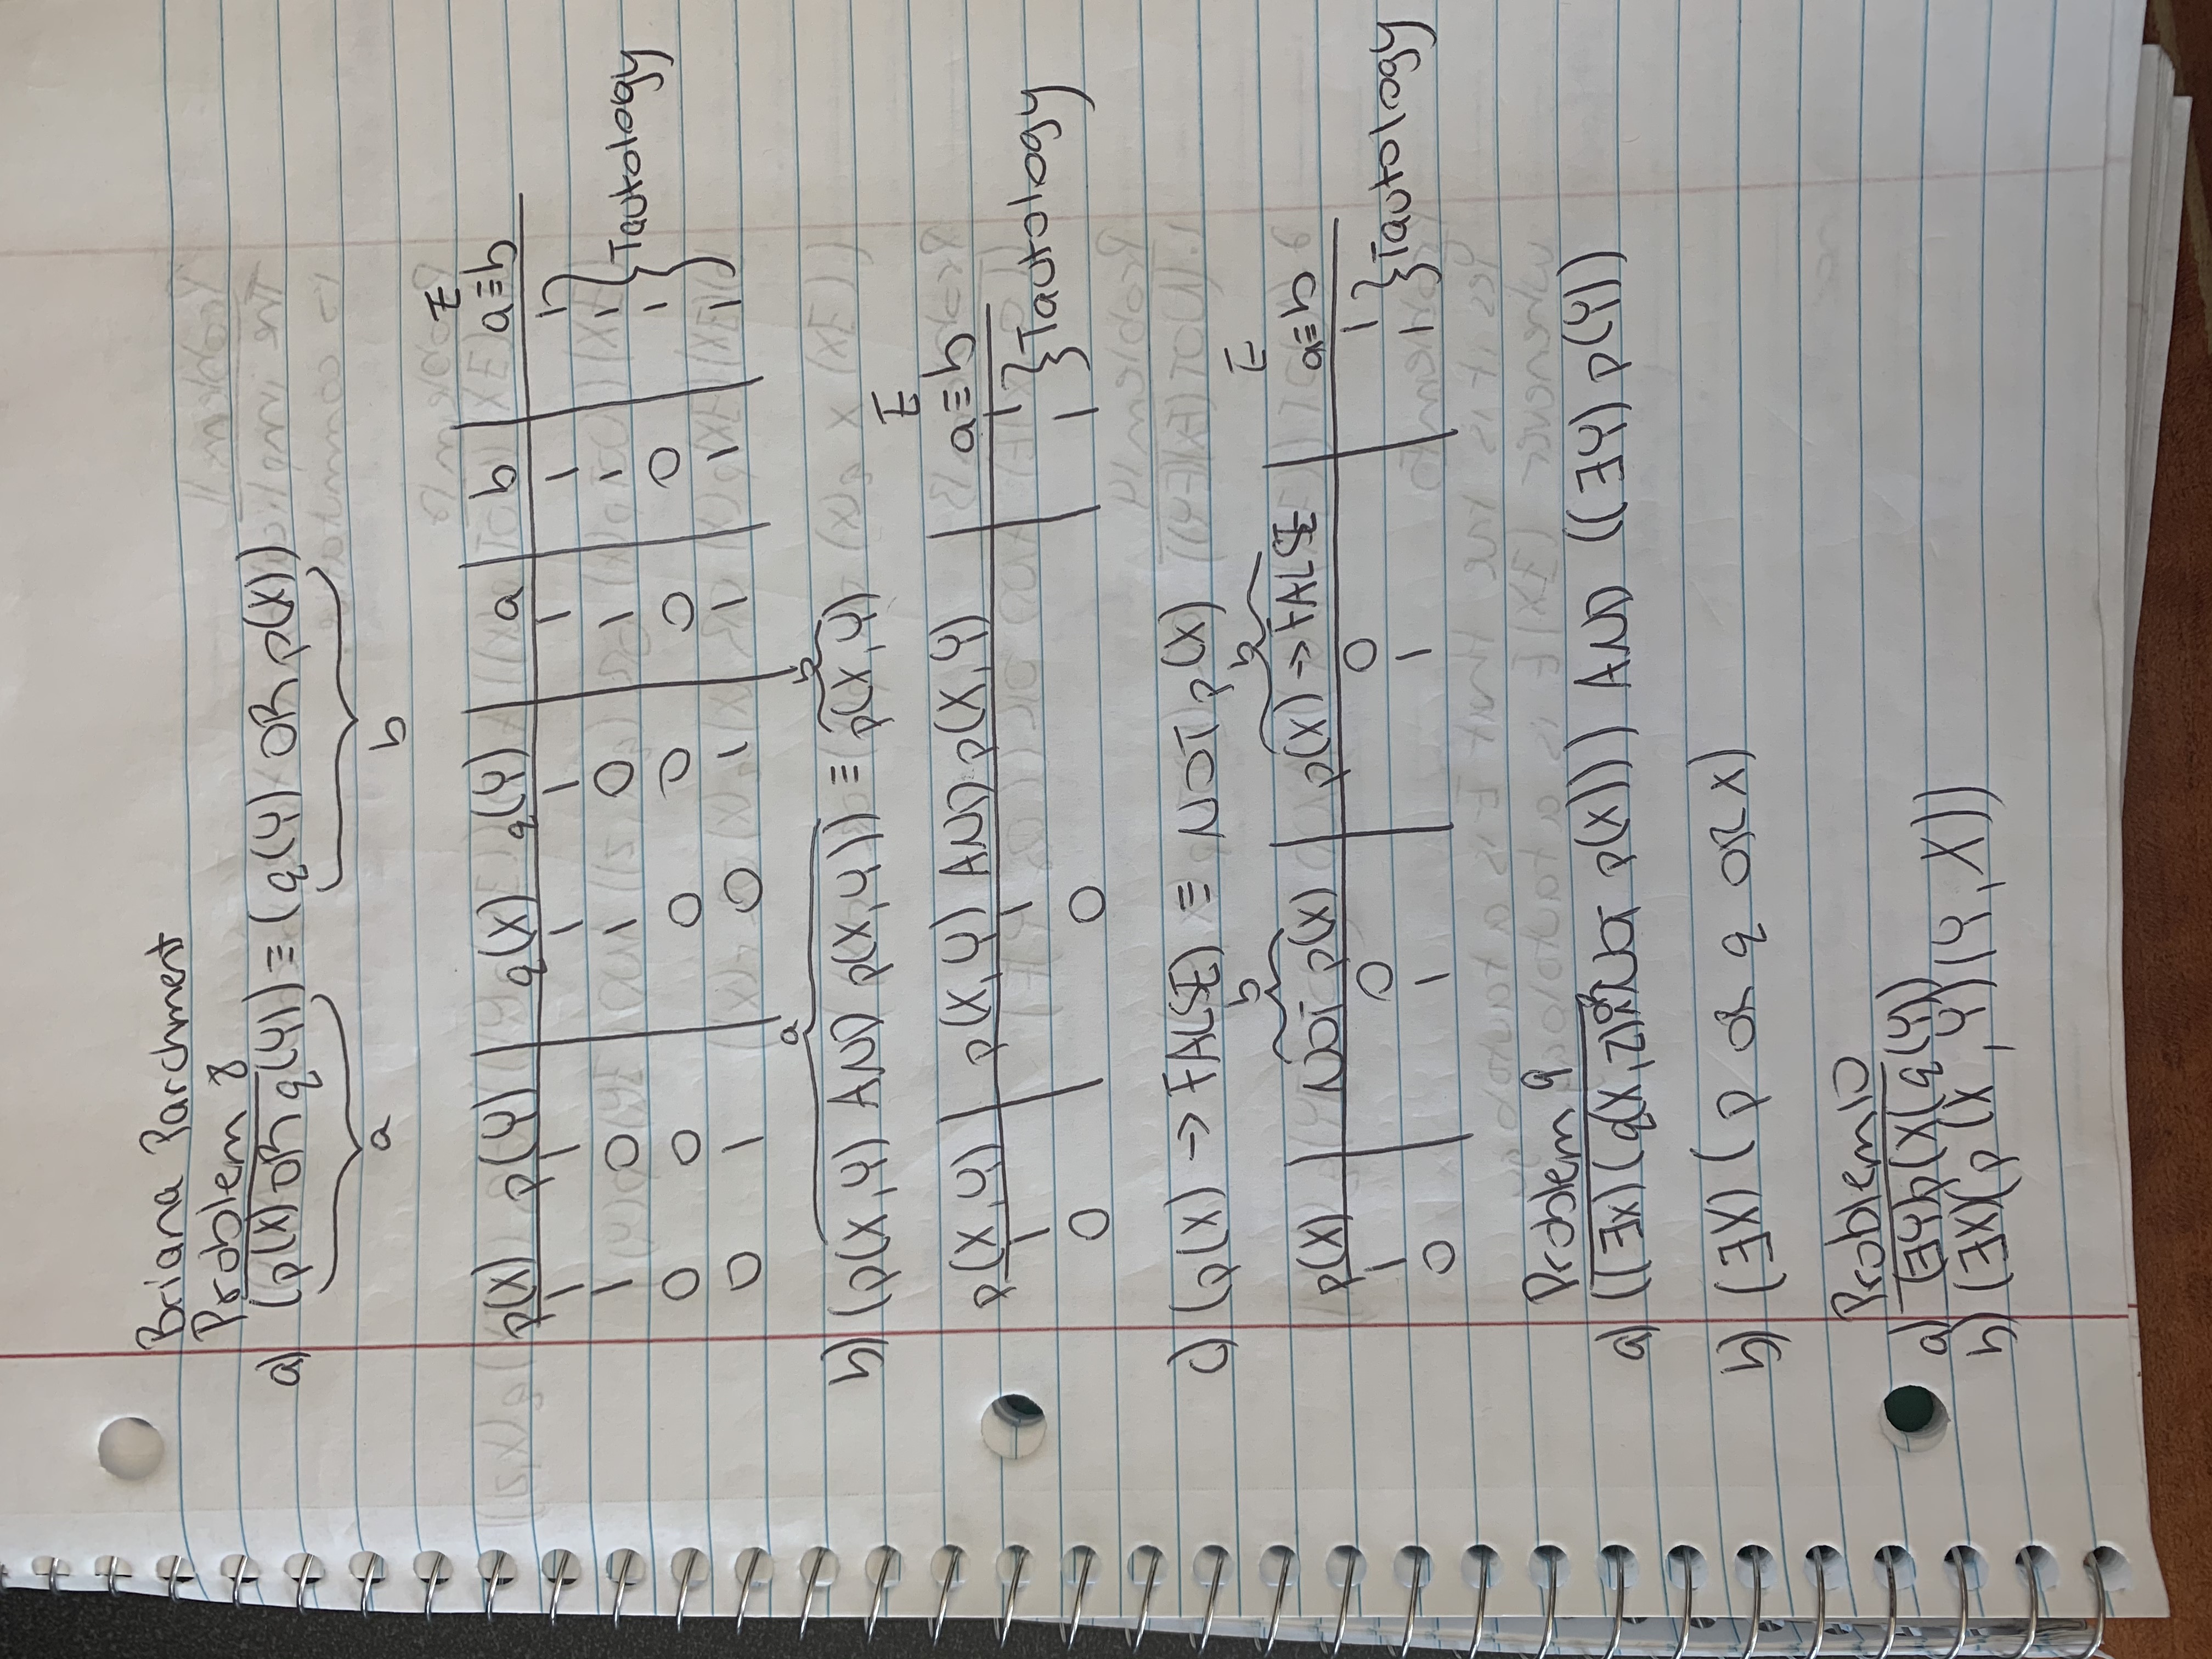 Briana Parchment
Problem 8
a) (p(X) OR q(Y)) ≡ (q(Y) OR p(X))
a b
E
p(X) p(Y) q(X) q(Y) a b a≡b
1 1 1 1 1 1 1
1 0 1 0 1 1 1 Tautology
0 0 0 0 0 0 1
0 1 0 1 1 1 1
a b
b) (p(X,Y) AND p(X,Y)) ≡ p(X,Y)
E
p(X,Y) p(X,Y) AND p(X,Y) a≡b
1 1 1 Tautology
0 0 1
c) (p(X) → FALSE) ≡ NOT p(X)
b b E
p(X) NOT p(X) p(X) → FALSE a≡b
1 0 0 1 Tautology
0 1 1 1
Problem 9
a) ((∃X)(q(X,Z) OR NOT p(X))) AND ((∃Y) p(Y))
b) (∃X) ( p OR q OR X)
Problem 10
a) (∃Y)p(X(q(Y))
b) (∃X)(p(X,Y)(Y,X))